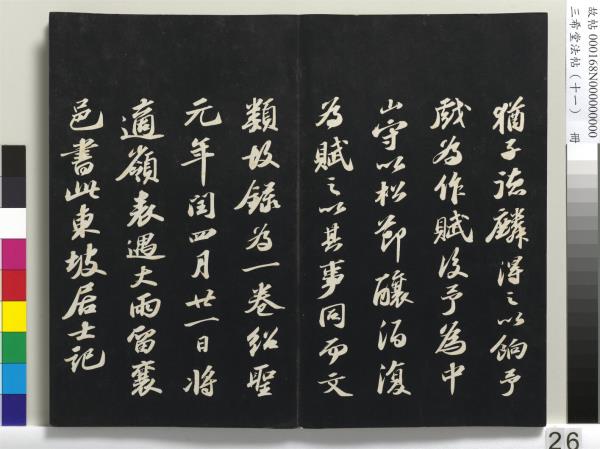 故帖 000168N000000000
三希堂法帖（十一） 冊
猶子德麟得之以餉予
戲為作賦後予為中
山守以松節釀酒復
為賦之以其事同而文
類故錄為一卷紹聖
元年閏四月廿一日將
適嶺表遇大雨留襄
邑書此東坡居士記
26